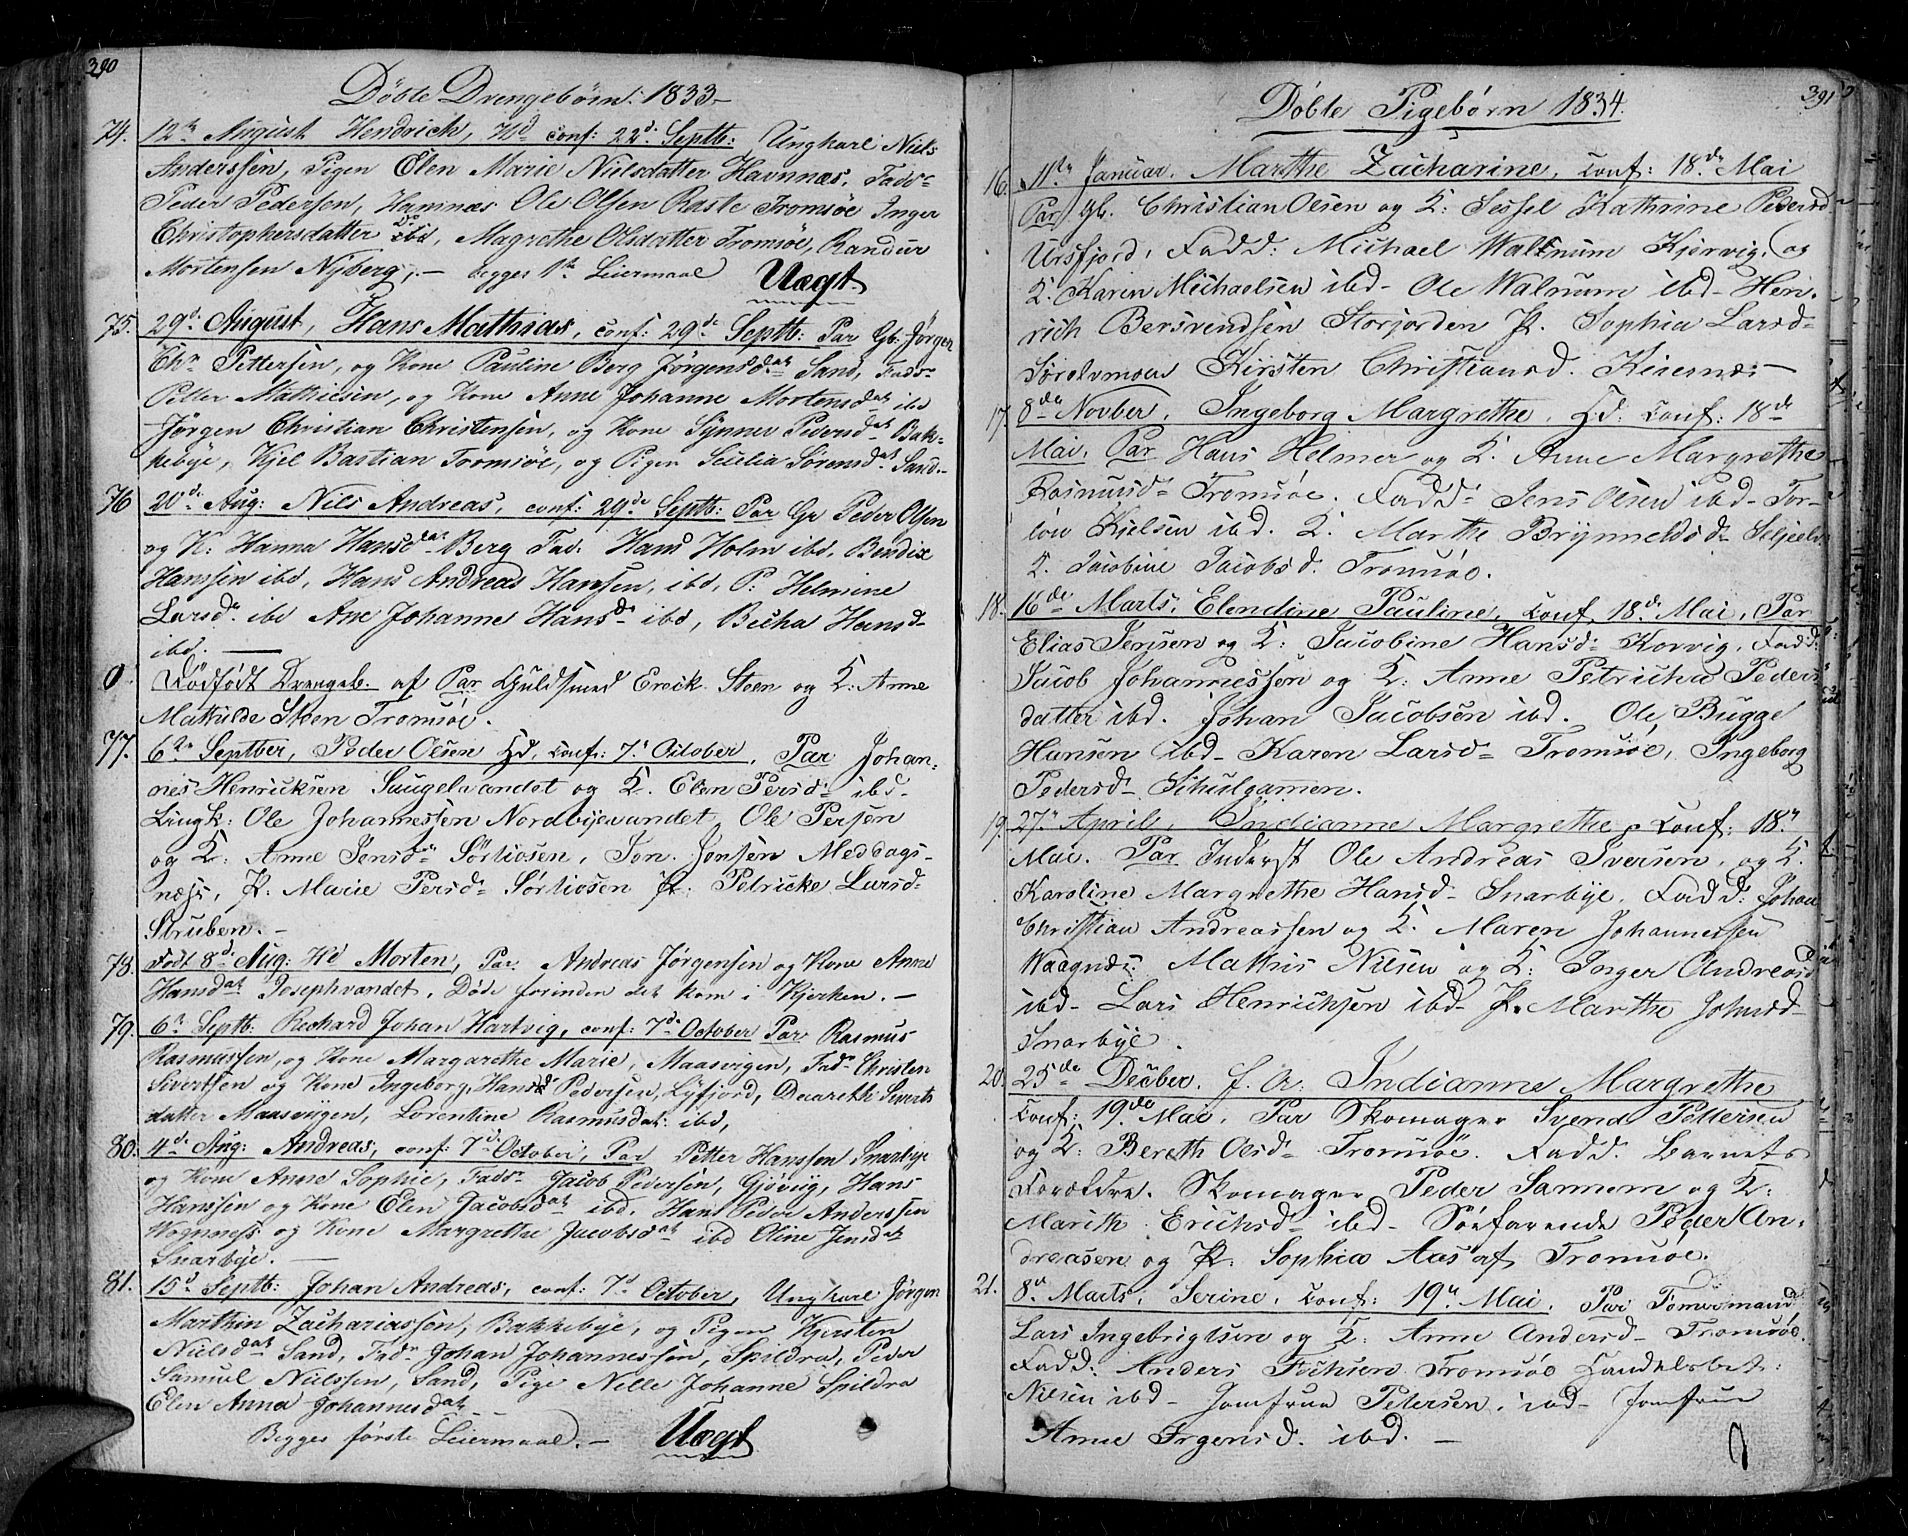 390
Döbte Drengebörn: 1833-
74. 12te August Hendrich, Hd conf: 22d: Septb: Ungkarl Niels
Anderssen, Pigen Elen Marie Nielsdatter Havnnæs, Fadr
Peder Pedersen, Hamnæs Ole Olsen Raste Tromsöe Inger
Christophersdatter ibid, Magrethe Olsdatter Tromsöe, Randur
Mortensen Nyberg,- begges 1te Leiermaal Uægt
75. 29d: August, Hans Mathias, conf: 29de Septb: Par Gb: Jörgen
Chr Pettersen, og Kone Pauline Berg Jörgensdat Sand, Fadr
Petter Mathiesen, og Kone Anne Johanne Mortensdat ibd
Jörgen Christian Christensen, og Kone Synner Pedersdat Bak-
kebye, Kjel Bastian Tromsöe, og Pigen Scicilia Sörensdat Sand.-
76 20de Aug: Nils Andreas, conf: 29de Septb: Par Gr Peder Olsen
og K: Hanna Hansdat Berg Fad. Hans Holm ibd, Bendix
Hanssen ibd, Hans Andreas Hanssen, ibd, P: Helmine
Larsdr ibd Ane Johanne Hansdr ibd, Bicha Hansd-
ibd. -
0 Dödfödt Drengeb. af Par Guldsmed Ereck Steen og K: Anne
Mathilde Steen Tromsöe.
77. 6te Septber, Peder Olsen Hd, conf: 7d October, Par Johan-
nes Henricksen Saugelvandet og K. Elen Persd- ibd-
Lingk: Ole Johannessen Nordbyevandet, Ole Persen
og K: Anne Jensdr Sörliosen, Jon Jonsen Meddags-
næss, P: Marie Persd- Sörliosen P: Petricke Larsd-
Struben.-
78. Födt 8de Aug: Hd Morten, Par Andreas Jörgensen og Kone Anne
Hansdat Josephvandet, Döde forinden det kom i Kjerken.-
79. 6te Septb: Rechard Johan Hartvig, conf: 7de October Par Rasmus
Rasmussen, og Kone Margarethe Marie, Maasvigen, Fadr Christen
Sivertsen og Kone Ingeborg, Hans Pedersen, Lyfjord, Daareth Siverts
datter Maasvigen, Lorentine Rasmusdat: ibd,
80. 4de Aug: Andreas, conf: 7de October, Par Petter Hanssen Snarbye
og Kone Anne Sophie, Fadr Jacob Pedersen, Gjövig, Hans
Hanssen og Kone Elen Jacobsdat ibd. Hans Peder Anderssen
Wognnæss og Kone Margrethe Jacobsdat ibd Oline Jensdat
Snarbye. -
81. 15d Septb: Johan Andreas, conf: 7d October, Ungkarl Jörgen
Marthin Zachariassen, Bakkebye, og Pigen Kjersten
Nielsdat Sand, Fadr Johan Johannessen, Spildra, Peder
Samuel Nielssen, Sand, Pige Nille Johanne Spildra
Elen Anna Johannesdat -
Begges förste Leiermaal. - Uægt
391
Döbte Pigebørn 1834.
16. 11te Januar. Marthe Zacharine, Conf: 18de Mai
Par Gb. Christian Olsen og K: Sessel Kathrine Pedersd
Ursfjord, Fadd: Michael Walnum Kjervig, og
K. Karen Michaelsen ibd- Ole Walnum ibd- Hen-
rich Bersvendsen Storjorden P. Sophia Larsd-
Sörelvmoen Kirsten Christiansd. Keiernæs-
17. 8de Novber. Ingeborg Margrethe. Hd. Conf: 18de
Mai. Par Hans Helmer og K. Anne Margrethe
Rasmusd- Tromsöe. Fadd- Jens Olsen ibd- Tor-
lou Kjelsen ibd. K. Marthe Brynneldsd- Seljeelv
K. Jacobine Jacobsd. Tromsöe.
18. 16de Marts. Elendine Pauline, Conf 18de Mai, Par
Elias Jensen og K: Jacobine Hansd- Korvig, Fadd:
Jacob Johannessen og K: Anne Petricha Peders
datter ibd. Johan Jacobsen ibd. Ole Bugge
Hansen ibd- Karen Larsd- Tromsöe, Ingeborg
Pedersd- Schulgamen.
19. 27de April. Indianne Margrethe. Conf: 18de
Mai. Par Inderst Ole Andreas Iversen. og K.
Karoline Margrethe Hansd- Snarbye. Fadd: Johan
Christian Andreassen og K. Maren Johannessen
Waagnæs. Mathis Nilsen og K: Inger Andreasd
ibd- Lars Henricksen ibd- P. Marthe Johnsd-
Snarbye.
20. 25de Decber. f. A. Indianne Margrethe
Conf: 19de Mai. Par Skomager Svend Pettersen
og K: Bereth Olsd- Tromsöe. Fadd. Barnets
Forældre. Skomager Peder Sannem og K:
Marith Erichsd- ibd- Söefarende Peder An-
dreasen og P. Sophia Aas af Tromsöe.
21. 8de Marts, Serine. Conf: 19de Mai. Par Tömermand
Lars Ingebrigtsen og K: Anne Andersd- Tromsöe.
Fadd: Anders Fochsen Tromsöe Handelsbet:
Nilsen ibd- Jomfrue Petersen. ibd- Jomfrue
Anne Irgensd. ibd. -